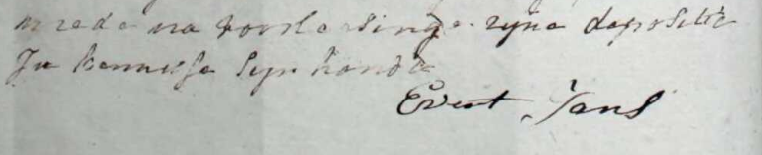 mede na voorlesinge zyne depositie
In kennisse syn hande
Evert Jans